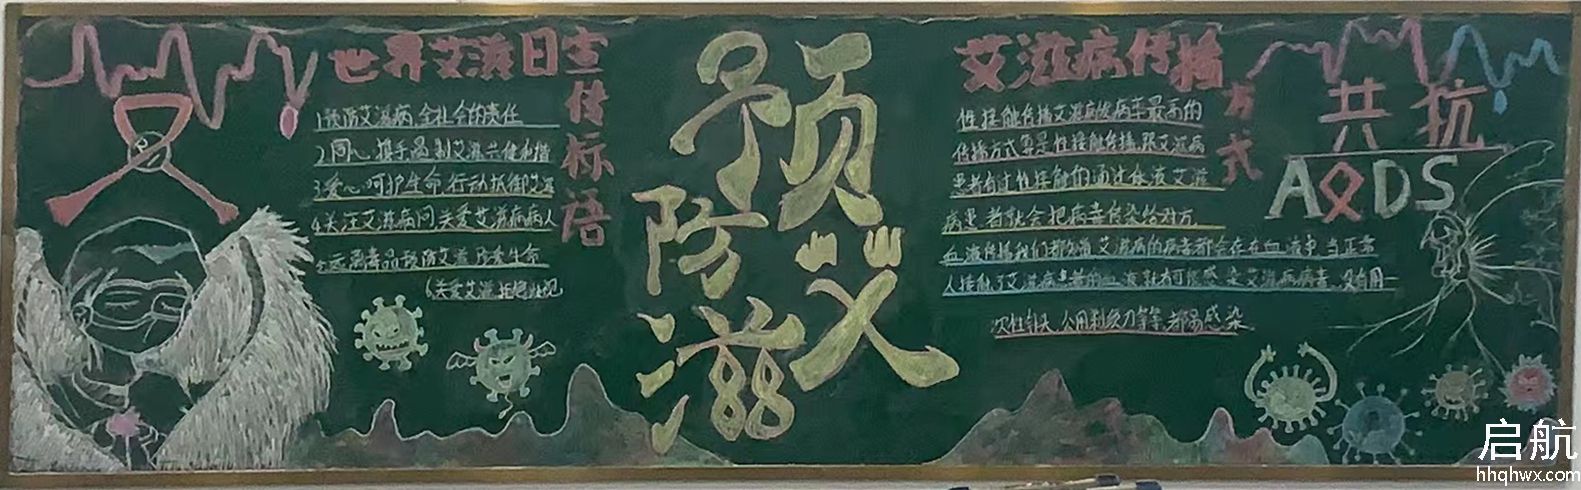 世界艾滋日宣传标语
1预防艾滋病,全社会的责任
2同心
3爱心呵护生命,行动抵御艾滋
4关注艾滋病问 关爱艾滋病病人
毒品预防艾滋 生命
(关爱艾滋
预艾
防滋
艾滋病传播方式
性接触传播艾滋病 病率最高的
传播方式算是性接触传播,跟艾滋病
患者有过性接触的通过体液艾滋
病患者就会把病毒传染给对方
血液传播我们都知道艾滋病的病毒都会存在血液中,当正常
人接触了艾滋病患者的血液就有可能感染艾滋病病毒,没有用一
次性针头、公用剃须刀等等,都易感染
共抗
AIDS
启航
hhqhwx.com